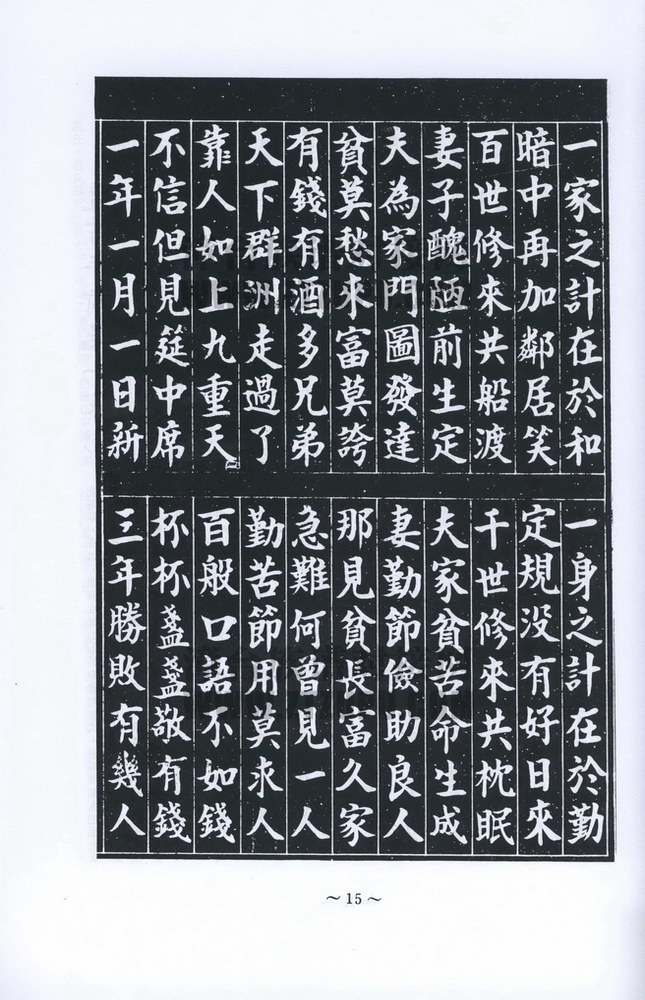 一家之計在於和
一身之計在於勤
暗中再加鄰居笑
定規没有好日來
百世修來共船渡
千世修來共枕眠
妻子醜陋前生定
夫家貧苦命生成
夫為家門圖發達
妻勤節儉助良人
貧莫愁來富莫誇
那見貧長富久家
有錢有酒多兄弟
急難何曾見一人
天下群洲走過了
勤苦節用莫求人
靠人如上九重天
百般口語不如錢
不信但見筵中席
杯杯盞盞敬有錢
一年一月一日新
三年勝敗有幾人
～15～